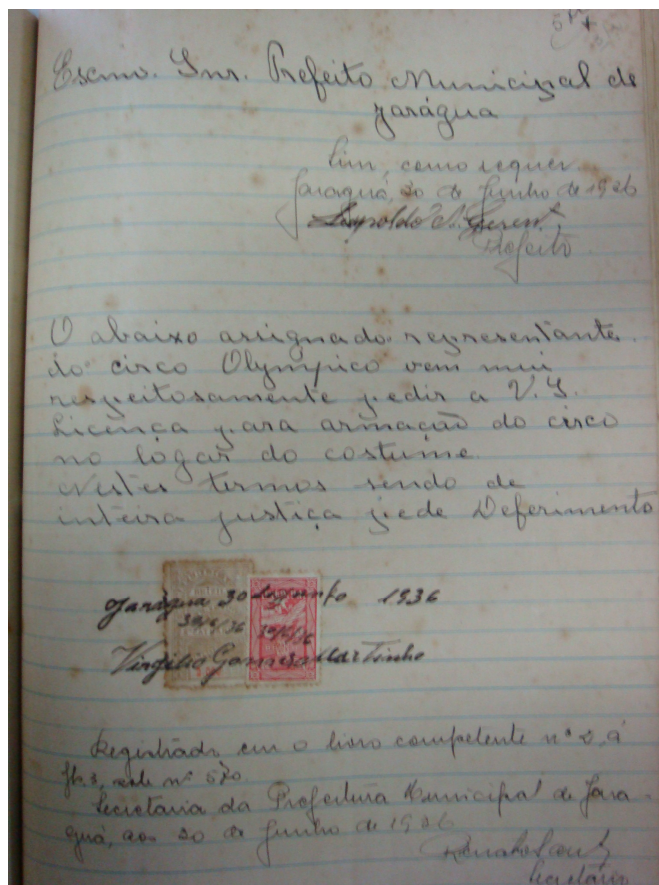 Exmo. Snr. Prefeito Municipal de
Jarágua
Sim, como requer
Jaraguá, 30 de Junho de 1936
Leopoldo A. Gerent
Prefeito
O abaixo assignado representante
do circo Olympico vem mui
respeitosamente pedir a V. S.
Licença para armação do circo
no logar do costume.
Nestes termos sendo de
inteira justiça pede Deferimento
Jarágua 30 Junho 1936
30/6/36 30/6/36
Virgilio Gomes Martinho
Registrado em o livro competente nº 2, á
fls. 3, sob nº 570.
Secretaria da Prefeitura Municipal de Jara-
guá, aos 30 de Junho de 1936
Secretário